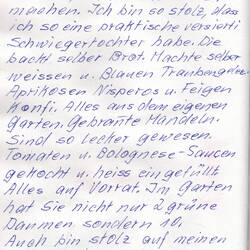 machen. Ich bin so stolz, dass
ich so eine praktische versierti
Schwiegertochter habe. Die
backt selber Brot. Machte selber
weissen u. Blauen Traubengelee.
Aprikosen Nisperos u. Feigen
Konfi. Alles aus dem eigenen
Garten. Gebrannte Mandeln.
Sind so lecker gewesen.
Tomaten u. Bolognese-Saucen
gekocht u. heiss ein gefüllt
Alles auf Vorrat. Im Garten
hat Sie nicht nur 2 grüne
Daumen sondern 10.
Auch bin stolz auf meinen